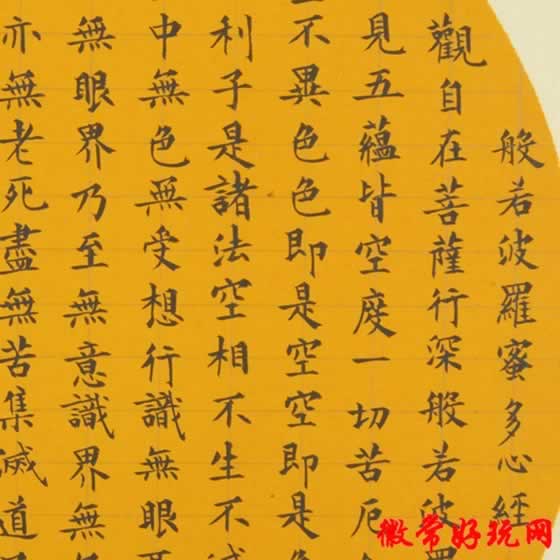 般若波羅蜜多心經
觀自在菩薩行深般若波
見五蘊皆空度一切苦厄
不異色色即是空空即是
利子是諸法空相不生不
中無色無受想行識無眼
無眼界乃至無意識界無
亦無老死盡無苦集滅道
徽常好玩网